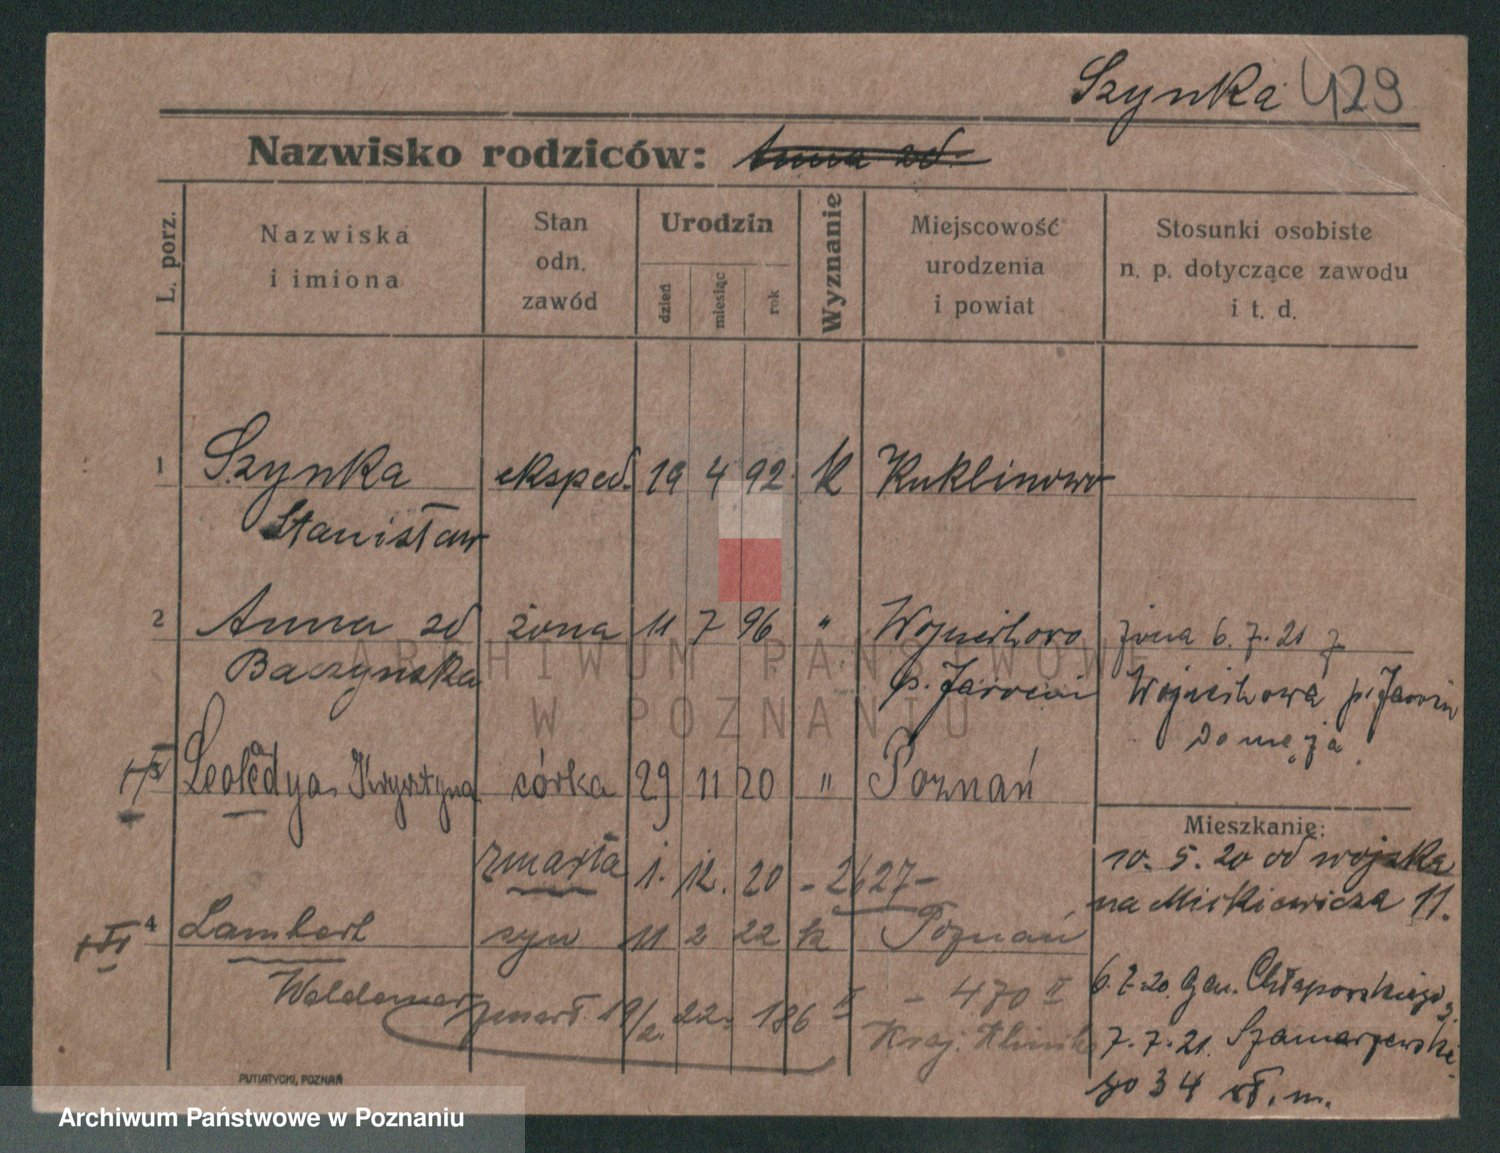 Szynka 429
Nazwisko rodziców: Anna zd.
L. porz.
Nazwiska i imiona
Stan odn. zawód
Urodzin
dzień miesiąc rok
Wyznanie
Miejscowość urodzenia i powiat
Stosunki osobiste n. p. dotyczące zawodu i t. d.
1 Szynka eksped. 19 4 92 k Kuklinowo
Stanisław
2 Anna zd żona 11 7 96 " Wojciechowo żona 6.7.21 z
Baczynska p. Jarocin Wojciechowa p. Jarocin
do męża
Krystyna córka 29 11 20 " Poznań
Mieszkanie:
zmarła 1. 12. 20 - 2627- 10. 5. 20 od wojska
na Mickiewicza 11.
4 Lambert syn 11 2 22 k Poznań
Waldemar zmarł. 19/2. 22. 186 II - 470 II 6.7.20 Gen. Chłapowskiego
Kraj. Klinika 7.7.21. Szamarzewskie-
go 34 wł. m.
PUTIATYCKI, POZNAŃ
ARCHIWUM PAŃSTWOWE
W POZNANIU
Archiwum Państwowe w Poznaniu